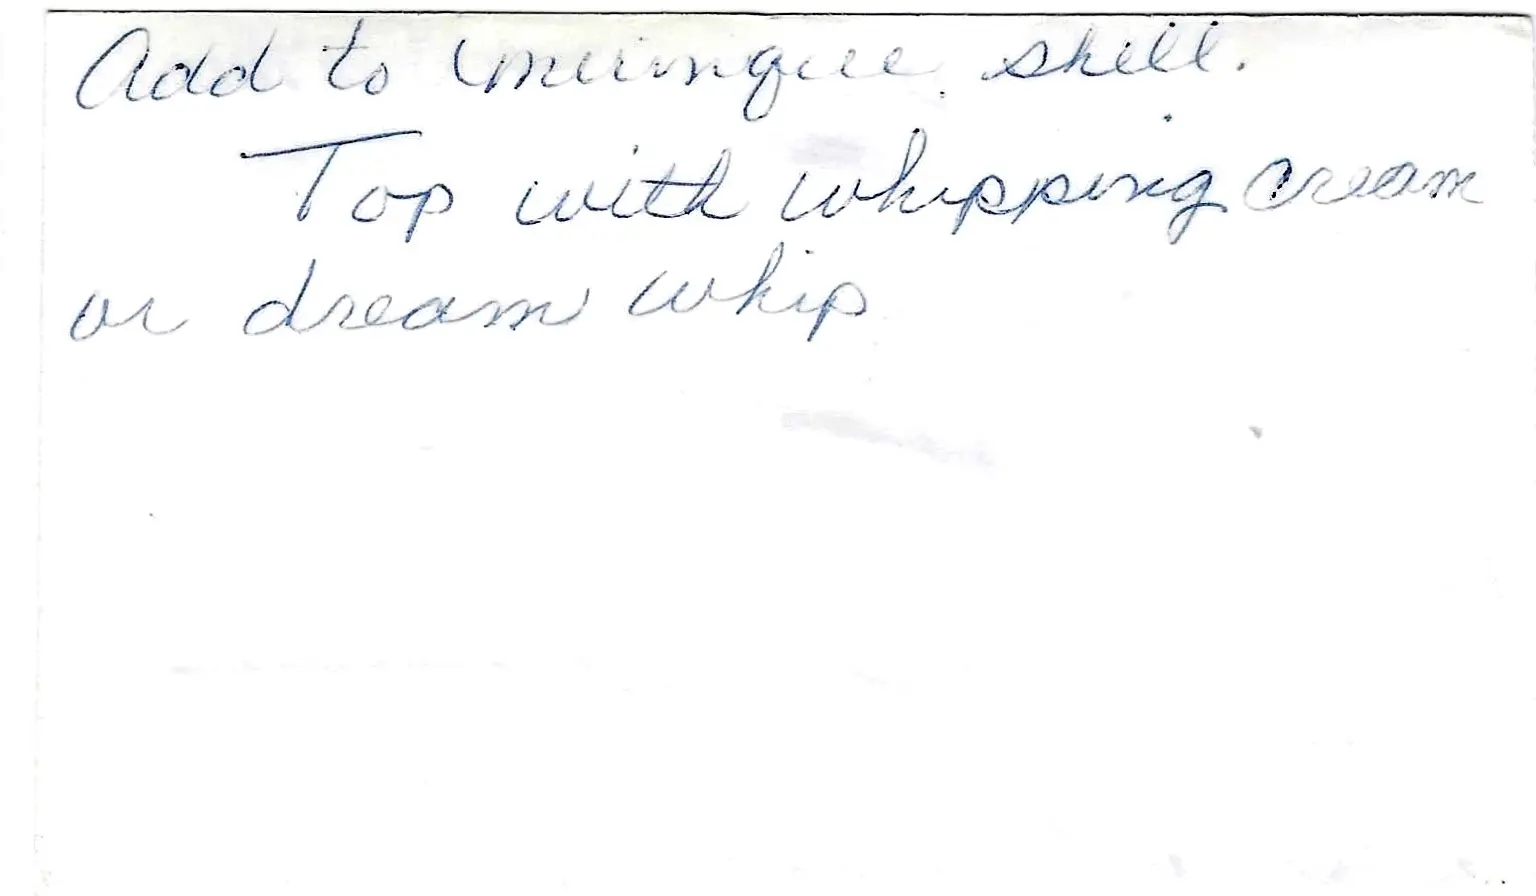 Add to muringue shell.
Top with whipping cream
or dream whip